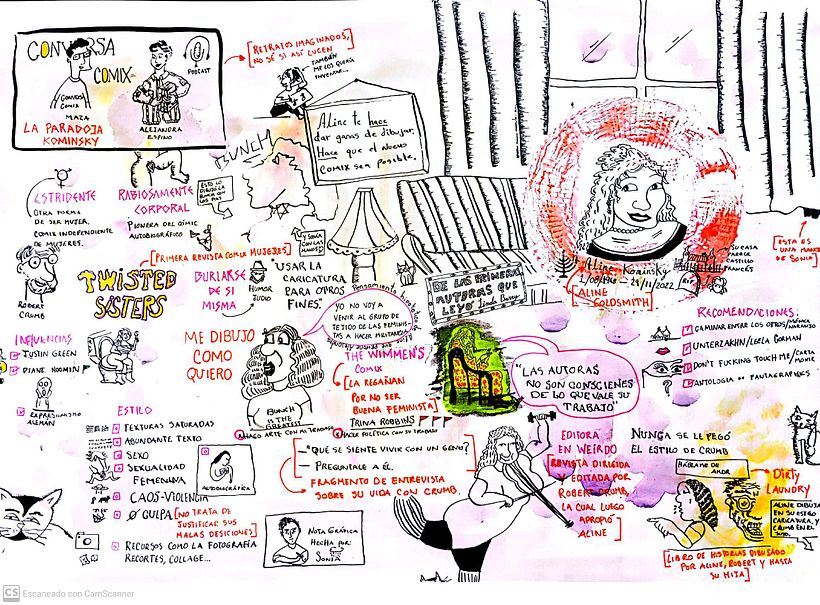 CONVERSA
COMIX
PODCAST
COMIX
MAZA
ALEJANDRA
ESPINO
LA PARADOJA
KOMINSKY
[RETRATOS IMAGINADOS,
NO SÉ SI ASÍ LUCEN
TAMBIÉN
ME LOS QUERÍA
INVENTAR...
Aline te hace
dar ganas de dibujar.
Hace que el nuevo
comix sea posible.
BUNCH
ESTRIDENTE
OTRA FORMA
DE SER MUJER.
COMIX INDEPENDIENTE
DE MUJERES.
RABIOSAMENTE
CORPORAL
PIONERA DEL CÓMIC
AUTOBIOGRÁFICO
[PRIMERA REVISTA COMIX MUJERES]
ROBERT
CRUMB
TWISTED
SISTERS
BURLARSE
DE SI
MISMA
HUMOR
JUDIO
"USAR LA
CARICATURA
PARA OTROS
FINES."
Y SONIA
CON LAS
MANOS
DE LAS PRIMERAS
AUTORAS QUE
LEYÓ Linda Barry
Aline Kominsky
1/08/1948 - 29/11/2022
[ALINE
GOLDSMITH]
RIP
SU CASA
PARECE
CASTILLO
FRANCÉS
[ESTA ES
UNA MANCHA
DE SONIA]
INFLUENCIAS
JUSTIN GREEN
DIANE NOOMIN
EXPRESIONISMO
ALEMÁN
ME DIBUJO
COMO
QUIERO
YO NO VOY A
VENIR AL GRUPO DE
TEJIDO DE LAS FEMINIS-
TAS A HACER MILITANCIA
BUNCH
IS THE
GREATEST
THE WIMMEN'S
COMIX
[LA REGAÑAN
POR NO SER
BUENA FEMINISTA]
TRINA ROBBINS
HAGO ARTE CON MI TRABAJO
HACER POLÍTICA CON SU TRABAJO
"LAS AUTORAS
NO SON CONSCIENES
DE LO QUE VALE SU
TRABAJO"
RECOMENDACIONES:
CAMINAR ENTRE LOS OTROS/MÓNICA
NARANJO
UNTERZAKHN/LEELA CORMAN
DON'T FUCKING TOUCH ME/
ANTOLOGÍA DE FANTAGRAPHICS
ESTILO
TEXTURAS SATURADAS
ABUNDANTE TEXTO
SEXO
SEXUALIDAD
FEMENINA
CAOS-VIOLENCIA
Ø CULPA [NO TRATA DE
JUSTIFICAR SUS
MALAS DESICIONES]
RECURSOS COMO LA FOTOGRAFÍA
RECORTES, COLLAGE...
AUTOBIOGRÁFICA
—"QUE SE SIENTE VIVIR CON UN GENIO?
— PREGUNTALE A ÉL.
FRAGMENTO DE ENTREVISTA
SOBRE SU VIDA CON CRUMB.
NOTA GRÁFICA
HECHA POR:
SONIA
EDITORA
EN WEIRDO
[REVISTA DIRIGIDA
Y EDITADA POR
ROBERT CRUMB,
LA CUAL LUEGO
APROPIO
ALINE]
NUNCA SE LE PEGÓ
EL ESTILO DE CRUMB
HABLAME DE
AMOR
DIRTY
LAUNDRY
ALINE DIBUJA
EN SU ESTILO
CARICATURA, Y
CRUMB EN EL
SUYO.
[LIBRO DE HISTORIAS DIBUJADO
POR ALINE, ROBERT Y HASTA
SU HIJA]
CS Escaneado con CamScanner